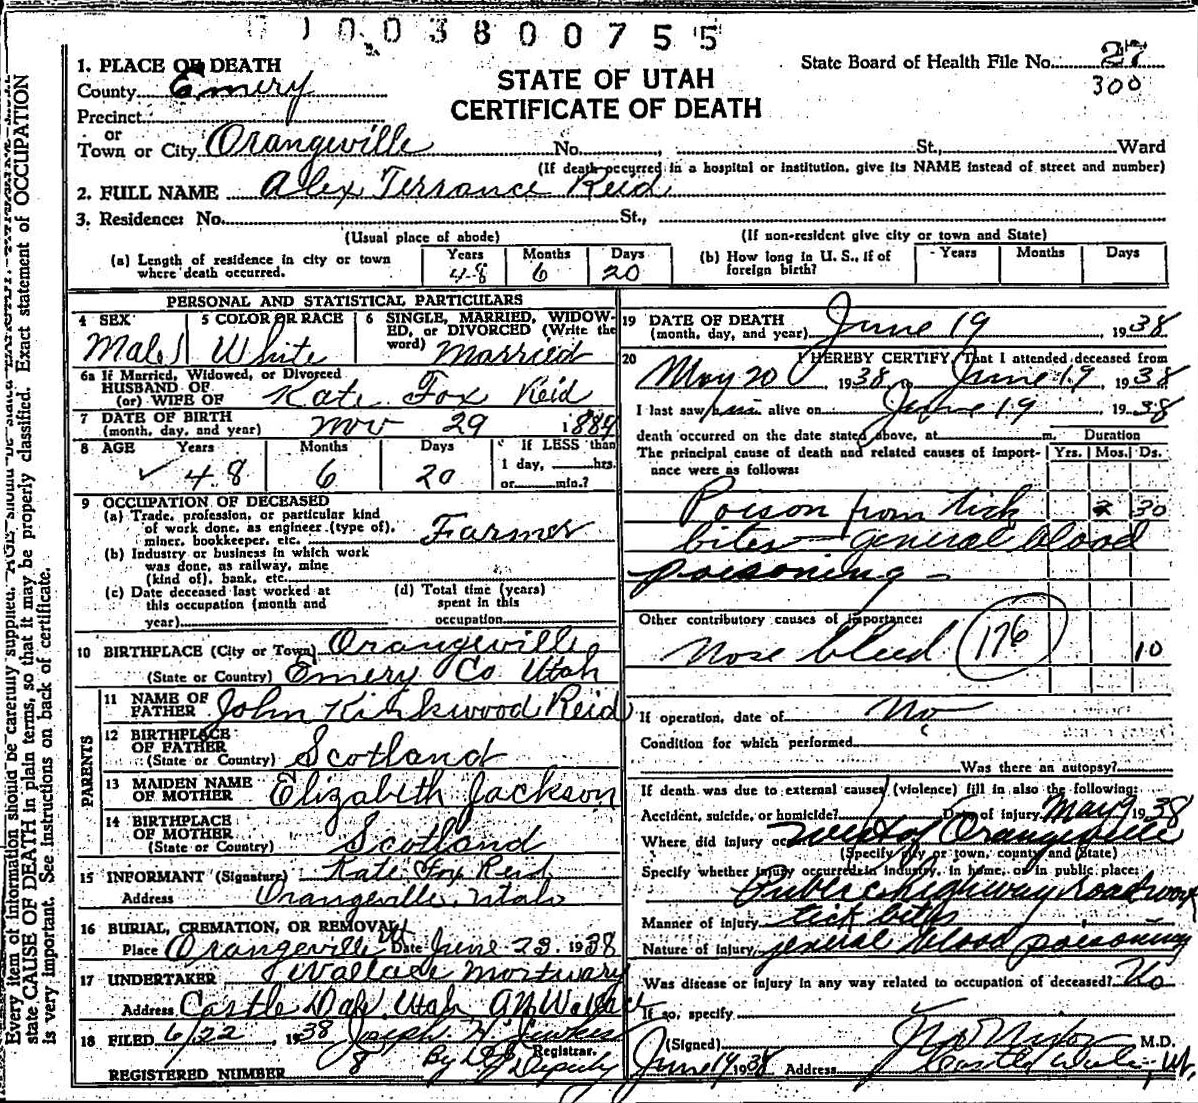 0 1 0 0 3 8 0 0 7 5 5
1. PLACE OF DEATH
County Emery
Precinct
or
Town or City Orangeville No. St., Ward
STATE OF UTAH
CERTIFICATE OF DEATH
State Board of Health File No. 27
300
(If death occurred in a hospital or institution, give its NAME instead of street and number)
2. FULL NAME Alex Terrance Reid
3. Residence: No. St.,
(Usual place of abode) (If non-resident give city or town and State)
(a) Length of residence in city or town where death occurred. Years 48 Months 6 Days 20
(b) How long in U. S., if of foreign birth? Years Months Days
PERSONAL AND STATISTICAL PARTICULARS
4 SEX Male
5 COLOR OR RACE White
6 SINGLE, MARRIED, WIDOWED, or DIVORCED (Write the word) Married
6a If Married, Widowed, or Divorced
HUSBAND OF
(or) WIFE OF Kate Fox Reid
7 DATE OF BIRTH
(month, day, and year) Nov 29 1889
8 AGE Years 48 Months 6 Days 20 If LESS than
1 day, hrs.
or min.?
9 OCCUPATION OF DECEASED
(a) Trade, profession, or particular kind
of work done, as engineer (type of),
miner, bookkeeper, etc. Farmer
(b) Industry or business in which work
was done, as railway, mine
(kind of), bank, etc.
(c) Date deceased last worked at
this occupation (month and
year)
(d) Total time (years)
spent in this
occupation
10 BIRTHPLACE (City or Town) Orangeville
(State or Country) Emery Co Utah
PARENTS
11 NAME OF
FATHER John Kirkwood Reid
12 BIRTHPLACE
OF FATHER
(State or Country) Scotland
13 MAIDEN NAME
OF MOTHER Elizabeth Jackson
14 BIRTHPLACE
OF MOTHER
(State or Country) Scotland
15 INFORMANT (Signature) Kate Fox Reid
Address Orangeville, Utah
16 BURIAL, CREMATION, OR REMOVAL
Place Orangeville Ut Date June 23 1938
17 UNDERTAKER Wallace Mortuary
Address Castle Dale, Utah
18 FILED 6/22, 1938 Joseph H.
Registrar.
REGISTERED NUMBER 8 By Deputy
19 DATE OF DEATH
(month, day, and year) June 19 1938
20 I HEREBY CERTIFY, That I attended deceased from
May 20 1938 June 19 1938
I last saw him alive on June 19 1938
death occurred on the date stated above, at m. Duration
The principal cause of death and related causes of importance were as follows: Yrs. Mos. Ds.
Poison from tick 30
bites — general blood
poisoning —
Other contributory causes of importance:
Nose bleed 176 10
If operation, date of No
Condition for which performed
Was there an autopsy?
If death was due to external causes (violence) fill in also the following:
Accident, suicide, or homicide? Date of injury May 9 1938
Where did injury occur West of Orangeville
(Specify city or town, county and State)
Specify whether injury occurred in industry, in home, or in public place:
Public highway road work
Manner of injury tick bites
Nature of injury general blood poisoning
Was disease or injury in any way related to occupation of deceased? No
If so, specify
(Signed) M.D.
June 19 1938 Address Castle Dale, Ut.
Every item of information should be carefully supplied. AGE should be stated EXACTLY.
state CAUSE OF DEATH in plain terms, so that it may be properly classified. Exact statement of OCCUPATION
is very important. See instructions on back of certificate.